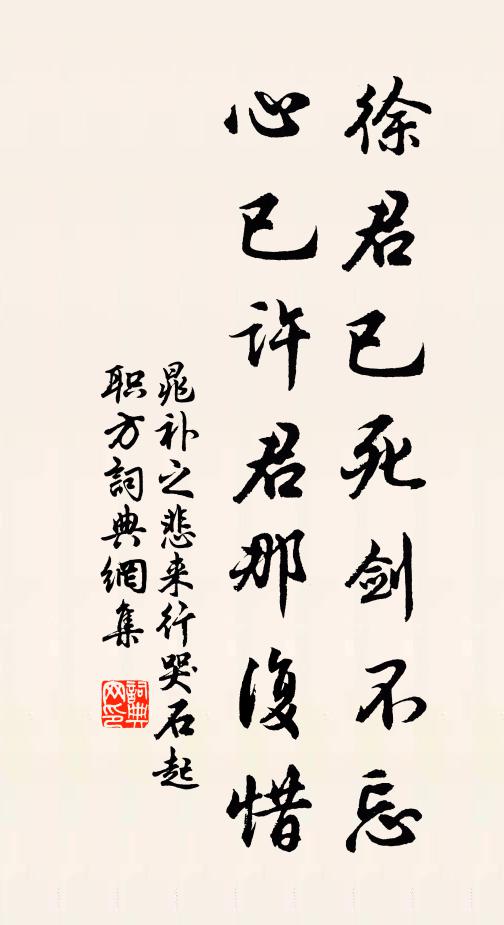 徐君已死剑不忘
心已许君那復惜
晁补之悲来行哭石起
职方詞典網集
詞典网印